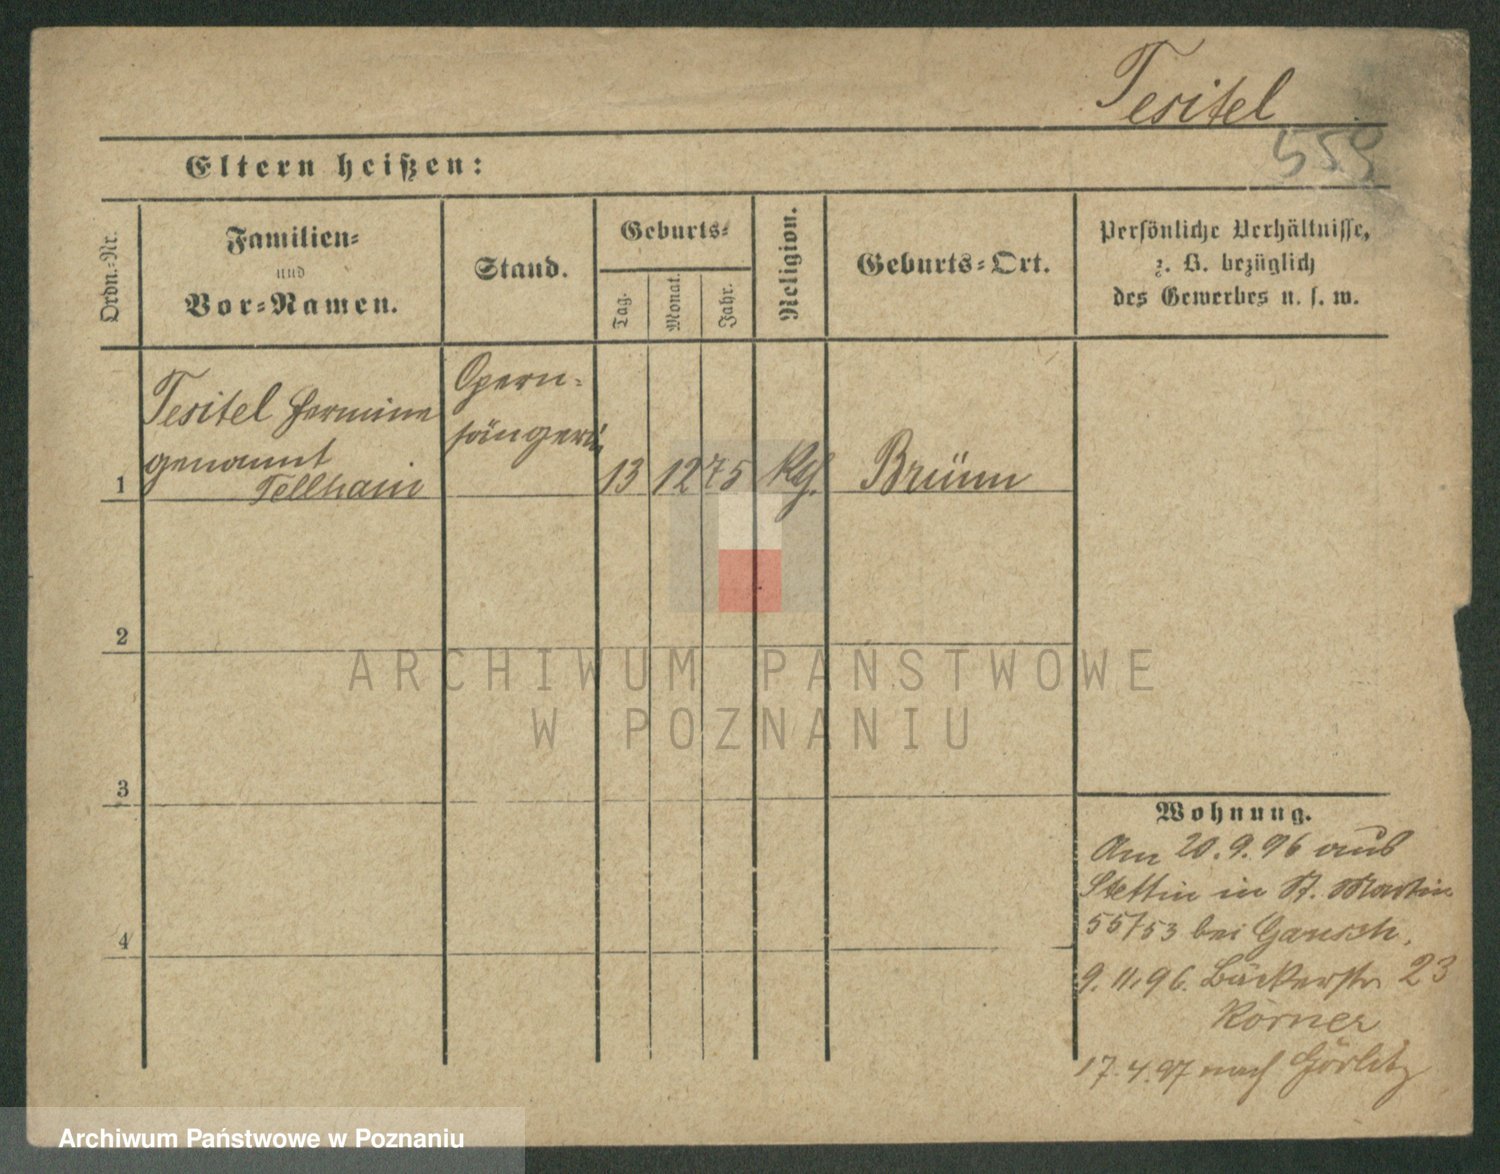 Tesitel
559
Eltern heißen:
Ordn.-Nr.
Familien-
und
Vor-Namen.
Stand.
Geburts-
Tag.
Monat.
Jahr.
Religion.
Geburts-Ort.
Persönliche Verhältnisse,
z. B. bezüglich
des Gewerbes u. s. w.
Tesitel Hermine
genannt
Tellhain
Opern-
sängerin
1
13 12 75 Kth. Brünn
2
ARCHIWUM PAŃSTWOWE
W POZNANIU
3
Wohnung.
Am 20.9.96 aus
Stettin in St. Martin
55/53 bei
4
9.11.96. Bäckerstr 23
Körner
17.4.97 nach Görlitz
Archiwum Państwowe w Poznaniu